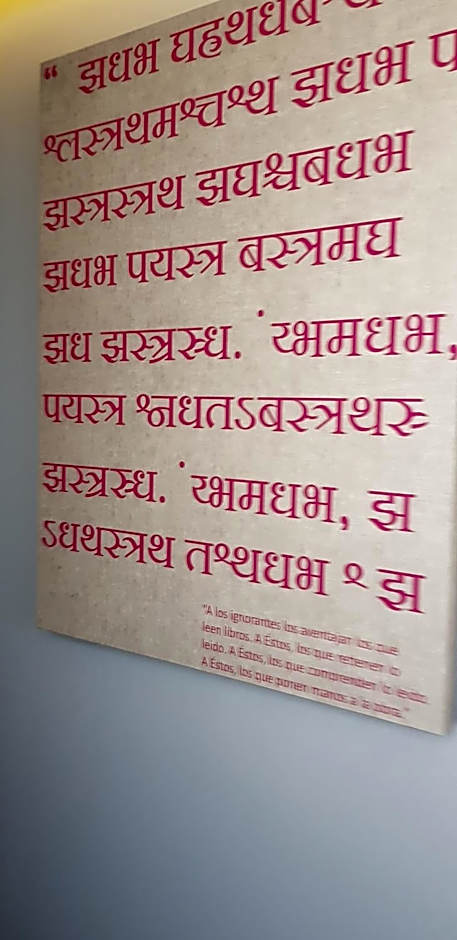 “ झधभ घहथधब
श्लस्त्रथमश्चश्थ झधभ प
झस्त्रस्त्रथ झघश्चबधभ
झधभ पयस्त्र बस्त्रमघ
झध झस्त्रस्ध. ंय्भमधभ,
पयस्त्र श्नधतऽबस्त्रथरु
झस्त्रस्ध. ंय्भमधभ, झ
ऽधथस्त्रथ तश्थधभ श् झ
"A los ignorantes los aventajan los que
leen libros. A Éstos, los que retienen lo
leído. A Éstos, los que comprenden lo leído.
A Éstos, los que ponen manos a la obra."